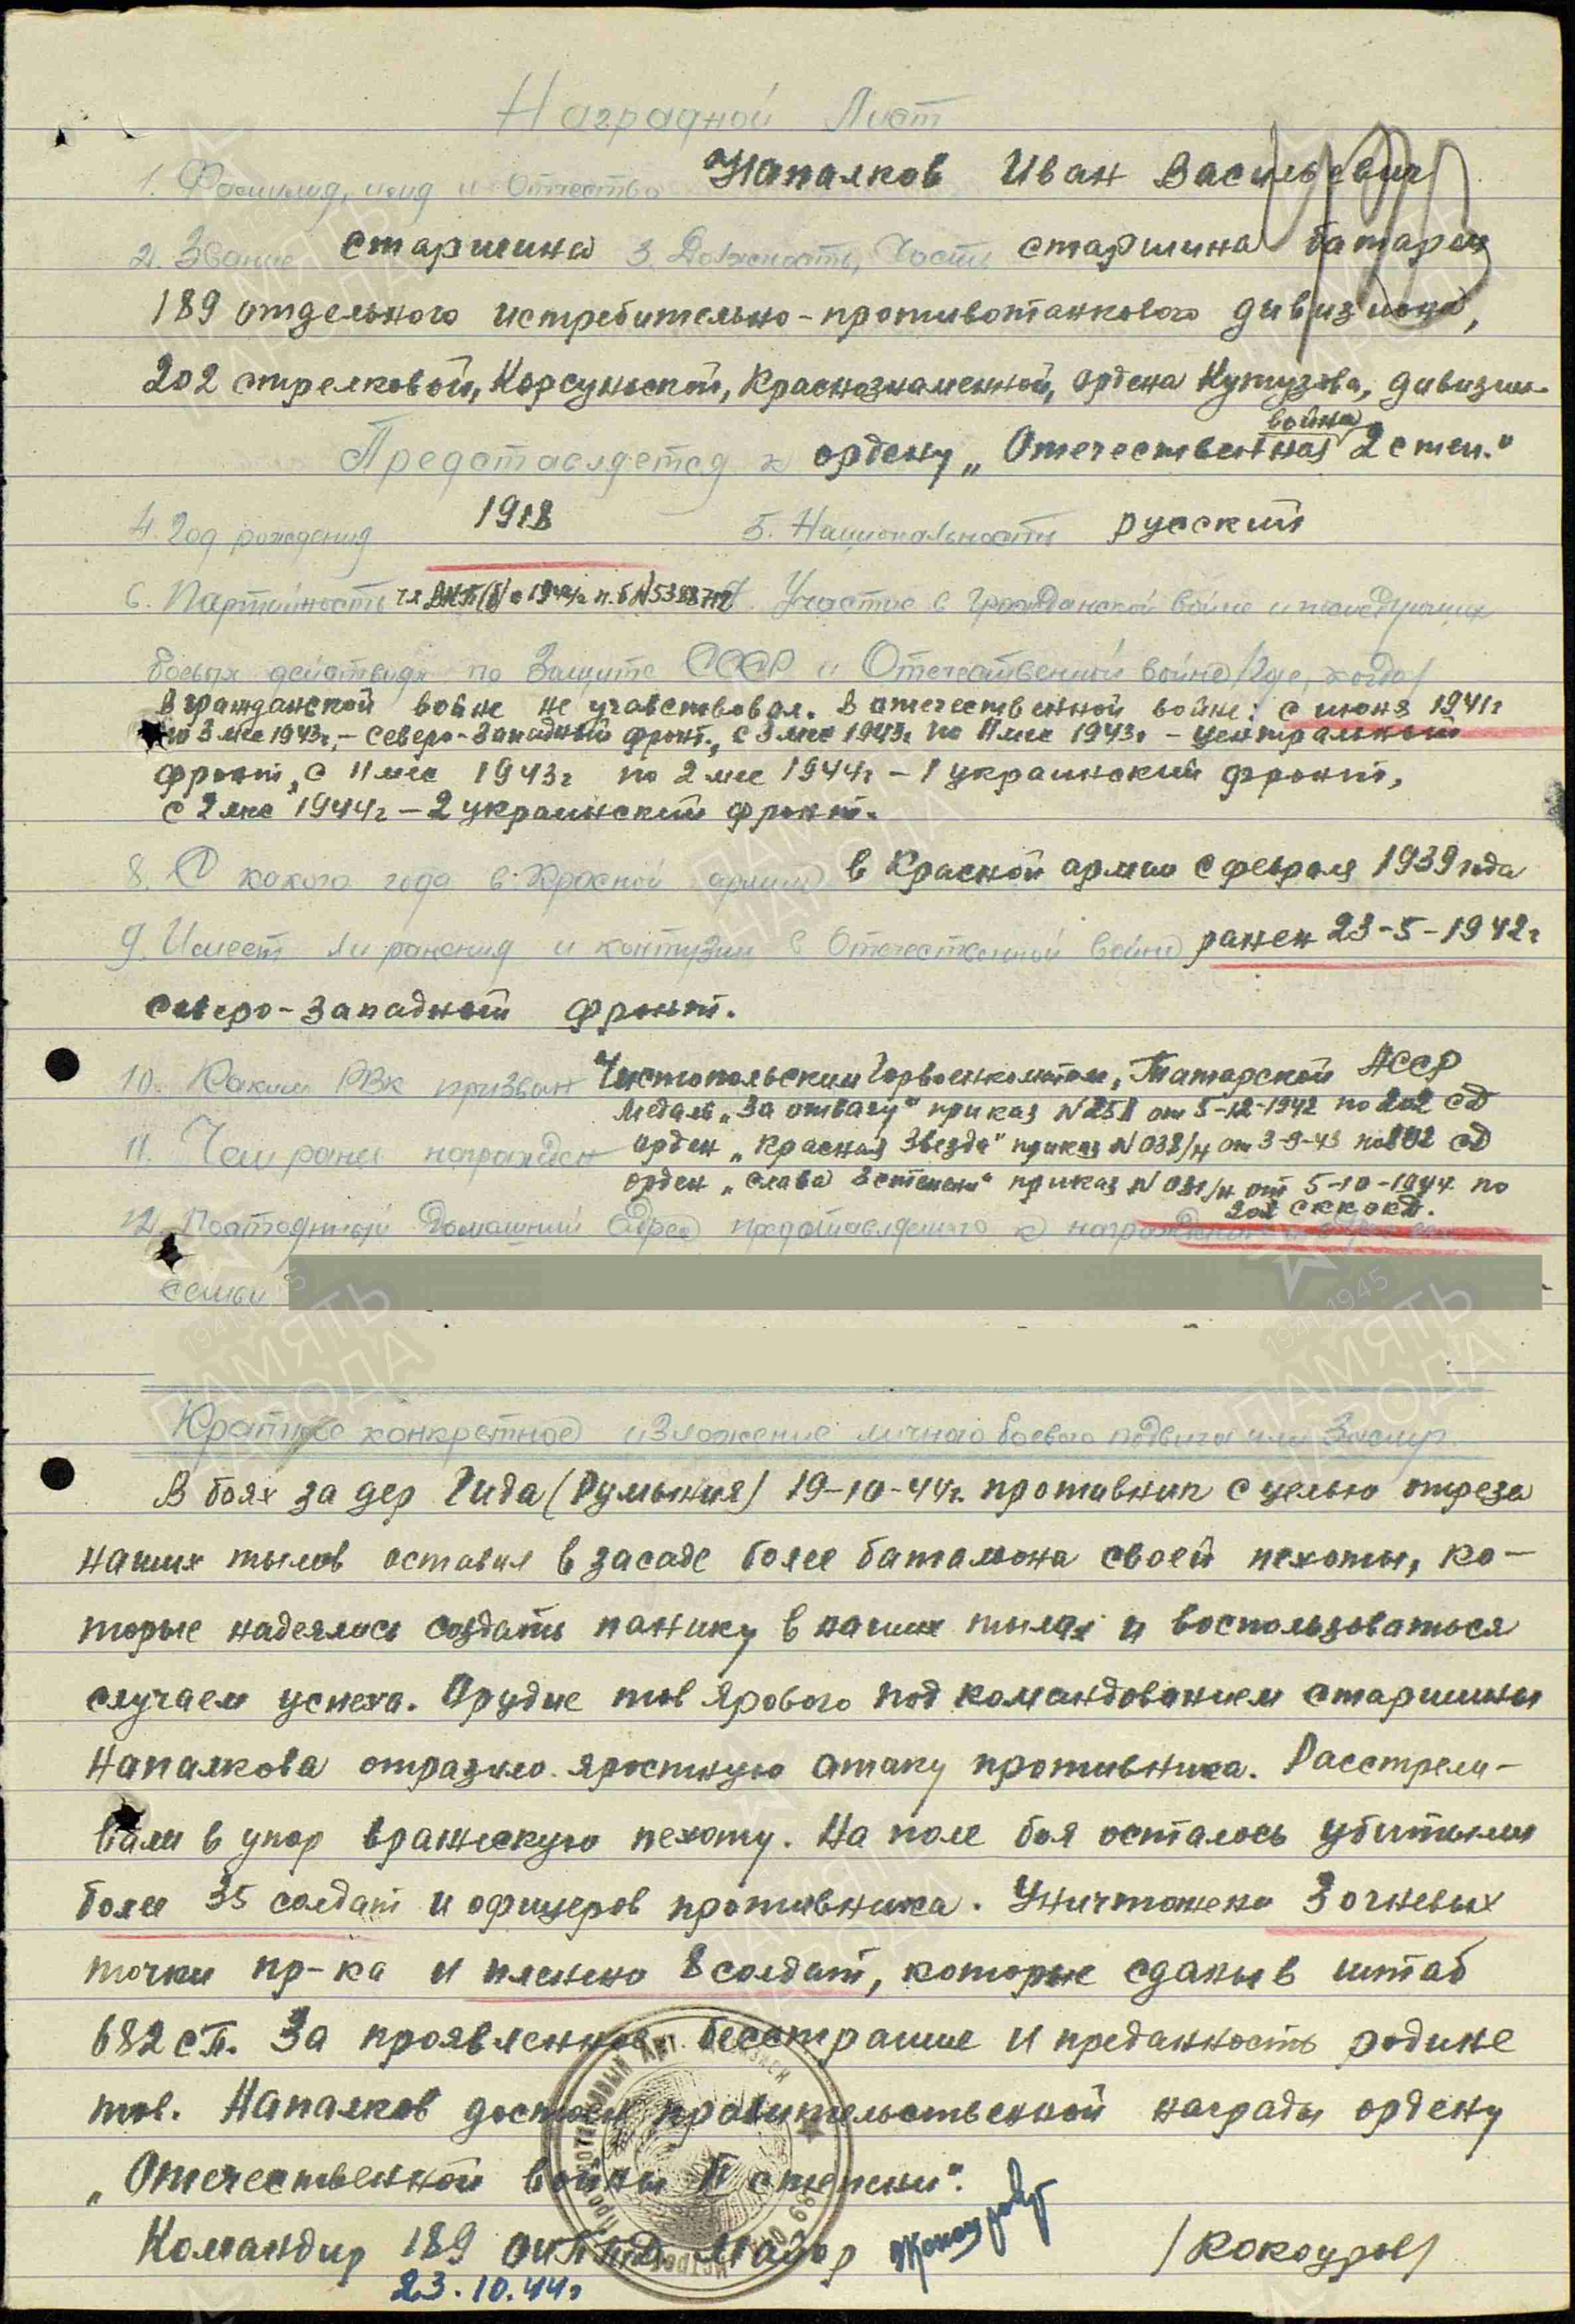 Наградной Лист
1. Фамилия, имя и Отчество Напалков Иван Васильевич
2. Звание старшина 3. Должность, Часть старшина батареи
189 отдельного истребительно-противотанкового дивизиона,
202 стрелковой, Корсуньской, Краснознаменной, ордена Кутузова, дивизии.
война
Представляется к ордену „Отечественная 2 степ."
4. Год рождения 1918 5. Национальность русский
6. Партийность чл ВКП(б) с п.б. Участие в гражданской войне и последующих
боевых действиях по Защите СССР и Отечественной войне /где, когда/
В гражданской войне не участвовал. В отечественной войне: с июня 1941г
по 3 мес 1943г, – Северо-Западный фронт, с 3 мес 1943г по 11 мес 1943г – центральный
фронт, с 11 мес 1943г по 2 мес 1944г – 1 украинский фронт,
с 2 мес 1944г – 2 украинский фронт.
8. С какого года в Красной армии в Красной армии с февраля 1939 года
9. Имеет ли ранения и контузии в Отечественной войне ранен 23-5-1942г
Северо-западный фронт.
10. Каким РВК призван Чистопольским Горвоенкоматом, Татарской АССР
Медаль „За отвагу" приказ от 5-12-1942 по 202 СД
11. Чем ранее награжден орден „Красная Звезда" приказ N 038/н от 3-9-43 по 202 СД
орден „Слава 3 степени" приказ от 5-10-1944 по
202 СККОКД.
12. Постоянный Домашний Адрес представляемого к награждению
семьи
Краткое конкретное изложение личного боевого подвига или Заслуг
В боях за дер Гида (Румыния) 19-10-44г. противник с целью отреза
наших тылов оставил в засаде более баталиона своей пехоты, ко-
торые надеялось создать панику в наших тылах и воспользоваться
случаем успеха. Орудие тов Ярового под командованием старшины
Напалкова отразило яростную атаку противника. Расстрели-
вали в упор вражескую пехоту. На поле боя осталось убитыми
более 35 солдат и офицеров противника. Уничтожено 3 огневых
точки пр-ка и пленено 8 солдат, которые сданы в штаб
682 СП. За проявленное бесстрашие и преданность родине
тов. Напалков достоен правительственной награды ордену
„Отечественной войны II степени".
Командир 189 ОИПТД Майор /Кокоуров/
23.10.44г